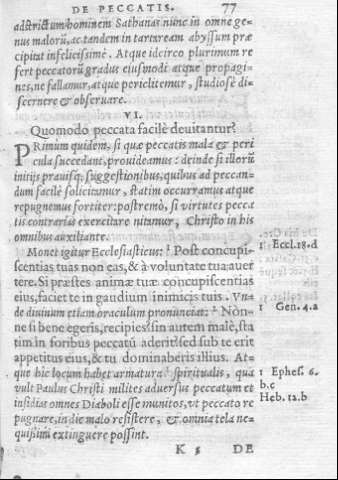 DE PECCATIS. 77
adstrictum hominem Sathanas nunc in omne ge-
nus malorũ, ac tandem in tartaream abyssum præ
cipitat infelicissimè. Atque idcirco plurimum re
fert peccatorũ gradus eiusmodi atque propagi-
nes, ne fallamur, atque periclitemur, studiosè di-
scernere & obseruare.
VI.
Quomodo peccata facilè deuitantur?
PRimum quidem, si quæ peccatis mala & peri
cula succedant, prouideamus: deinde si illorũ
initijs prauisq; suggestionibus, quibus ad peccan-
dum facilè solicitamur, statim occurramus atque
repugnemus fortiter: postremò, si virtutes pecca
tis contrarias exercitare nitamur, Christo in his
omnibus auxiliante.
Monet igitur Ecclesiasticus: Post concupi-
scentias tuas non eas, & à voluntate tua auer
tere. Si præstes animæ tuæ concupiscentias
eius, faciet te in gaudium inimicis tuis. Vn-
de diuinum etiam oraculum pronunciat: Nòn-
ne si bene egeris, recipies: sin autem malè, sta
tim in foribus peccatũ aderit? sed sub te erit
appetitus eius, & tu dominaberis illius. At-
que hîc locum habet armatura spiritualis, qua
vult Paulus Christi milites aduersus peccatum et
insidias omnes Diaboli esse munitos, vt peccato re
pugnare, in die malo resistere, & omnia tela ne-
quissimi extinguere possint.
K 5 DE
1 Eccl. 18. d
1 Gen. 4. a
1 Ephes. 6.
b. c
Heb. 12. b